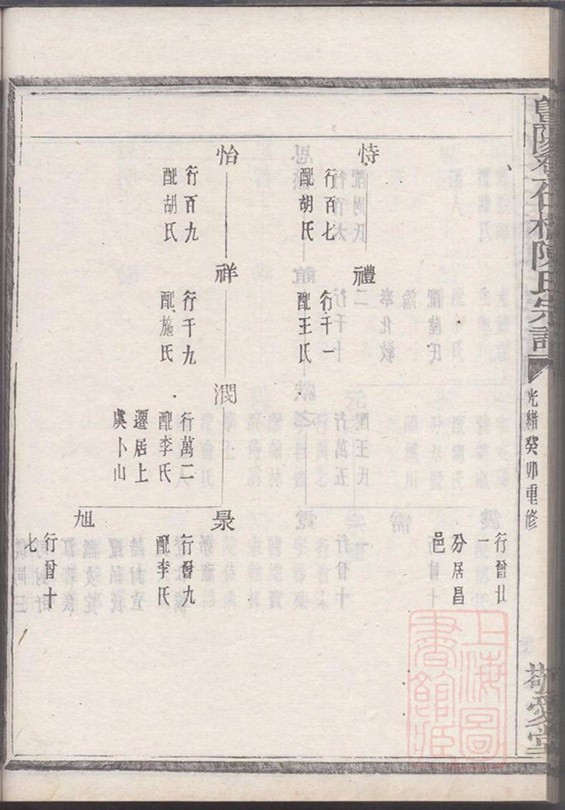 暨陽孝石橋陳氏宗譜
光緒癸卯重修
敬愛堂
行曾廿
一
分居昌
邑
恃
行百七
配胡氏
禮
行千一
配王氏
怡
行百九
配胡氏
祥
行千九
配施氏
潤
行萬二
配李氏
遷居上
虞卜山
景
行曾九
配李氏
旭
行曾十
七
上海圖
書館藏